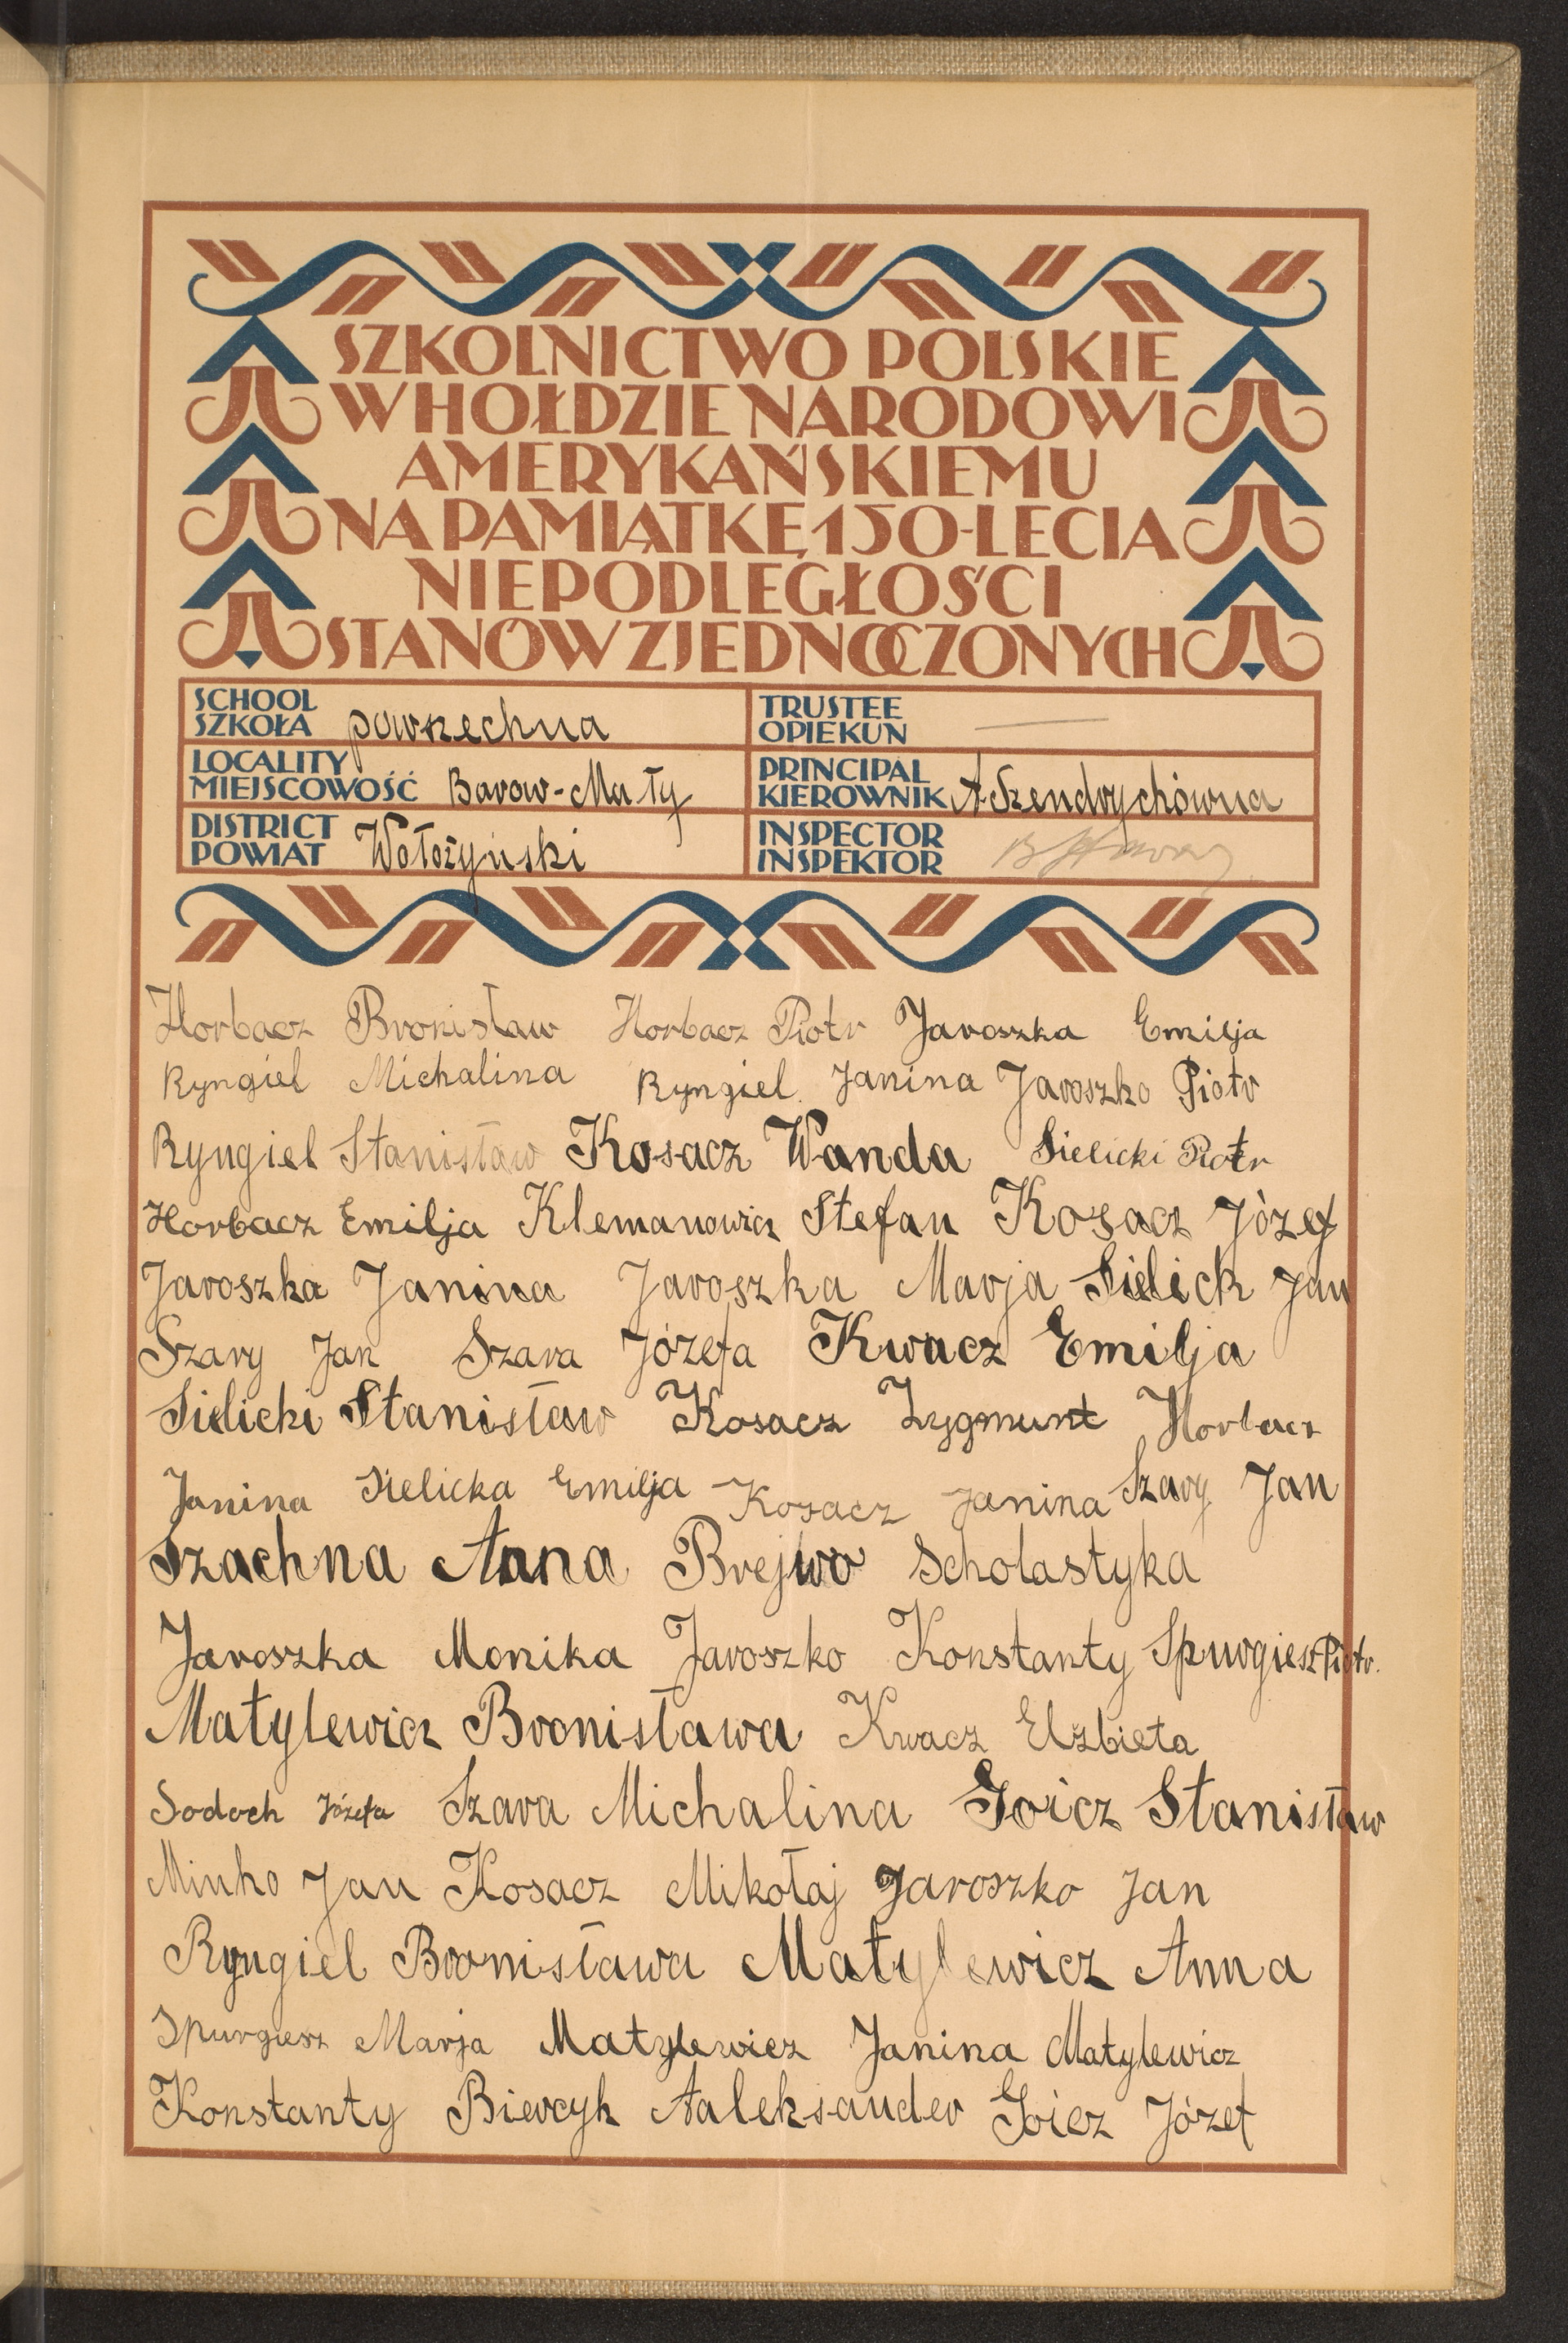 SZKOLNICTWO POLSKIE
W HOŁDZIE NARODOWI
AMERYKAŃSKIEMU
NA PAMIĄTKĘ 150-LECIA
NIEPODLEGŁOŚCI
STANÓW ZJEDNOCZONYCH
SCHOOL
SZKOŁA powszechna
TRUSTEE
OPIEKUN —
LOCALITY
MIEJSCOWOŚĆ Barow-Mały
PRINCIPAL
KIEROWNIK A. Szendrychówna
DISTRICT
POWIAT Wołożyński
INSPECTOR
INSPEKTOR
Horbacz Bronisław Horbacz Piotr Jaroszka Emilja
Ryngiel Michalina Ryngiel. Janina Jaroszko Piotr
Ryngiel Stanisław Kosacz Wanda Sielicki Piotr
Horbacz Emilja Klemanowicz Stefan Kosacz Józef
Jaroszka Janina Jaroszka Marja Sielick Jan
Szary Jan Szara Józefa Kwacz Emilja
Sielicki Stanisław Kosacz Zygmunt Horbacz
Janina Sielicka Emilja Kosacz Janina Szary Jan
Szachna Anna Brejwo Scholastyka
Jaroszka Monika Jaroszko Konstanty Spurgiesz Piotr.
Matylewicz Bronisława Kwacz Elżbieta
Sodoch Józefa Szara Michalina Goicz Stanisław
Minho Jan Kosacz Mikołaj Jaroszko Jan
Ryngiel Bronisława Matylewicz Anna
Spurgiesz Marja Matylewicz Janina Matylewicz
Konstanty Biercyk Aaleksander Goicz Józef